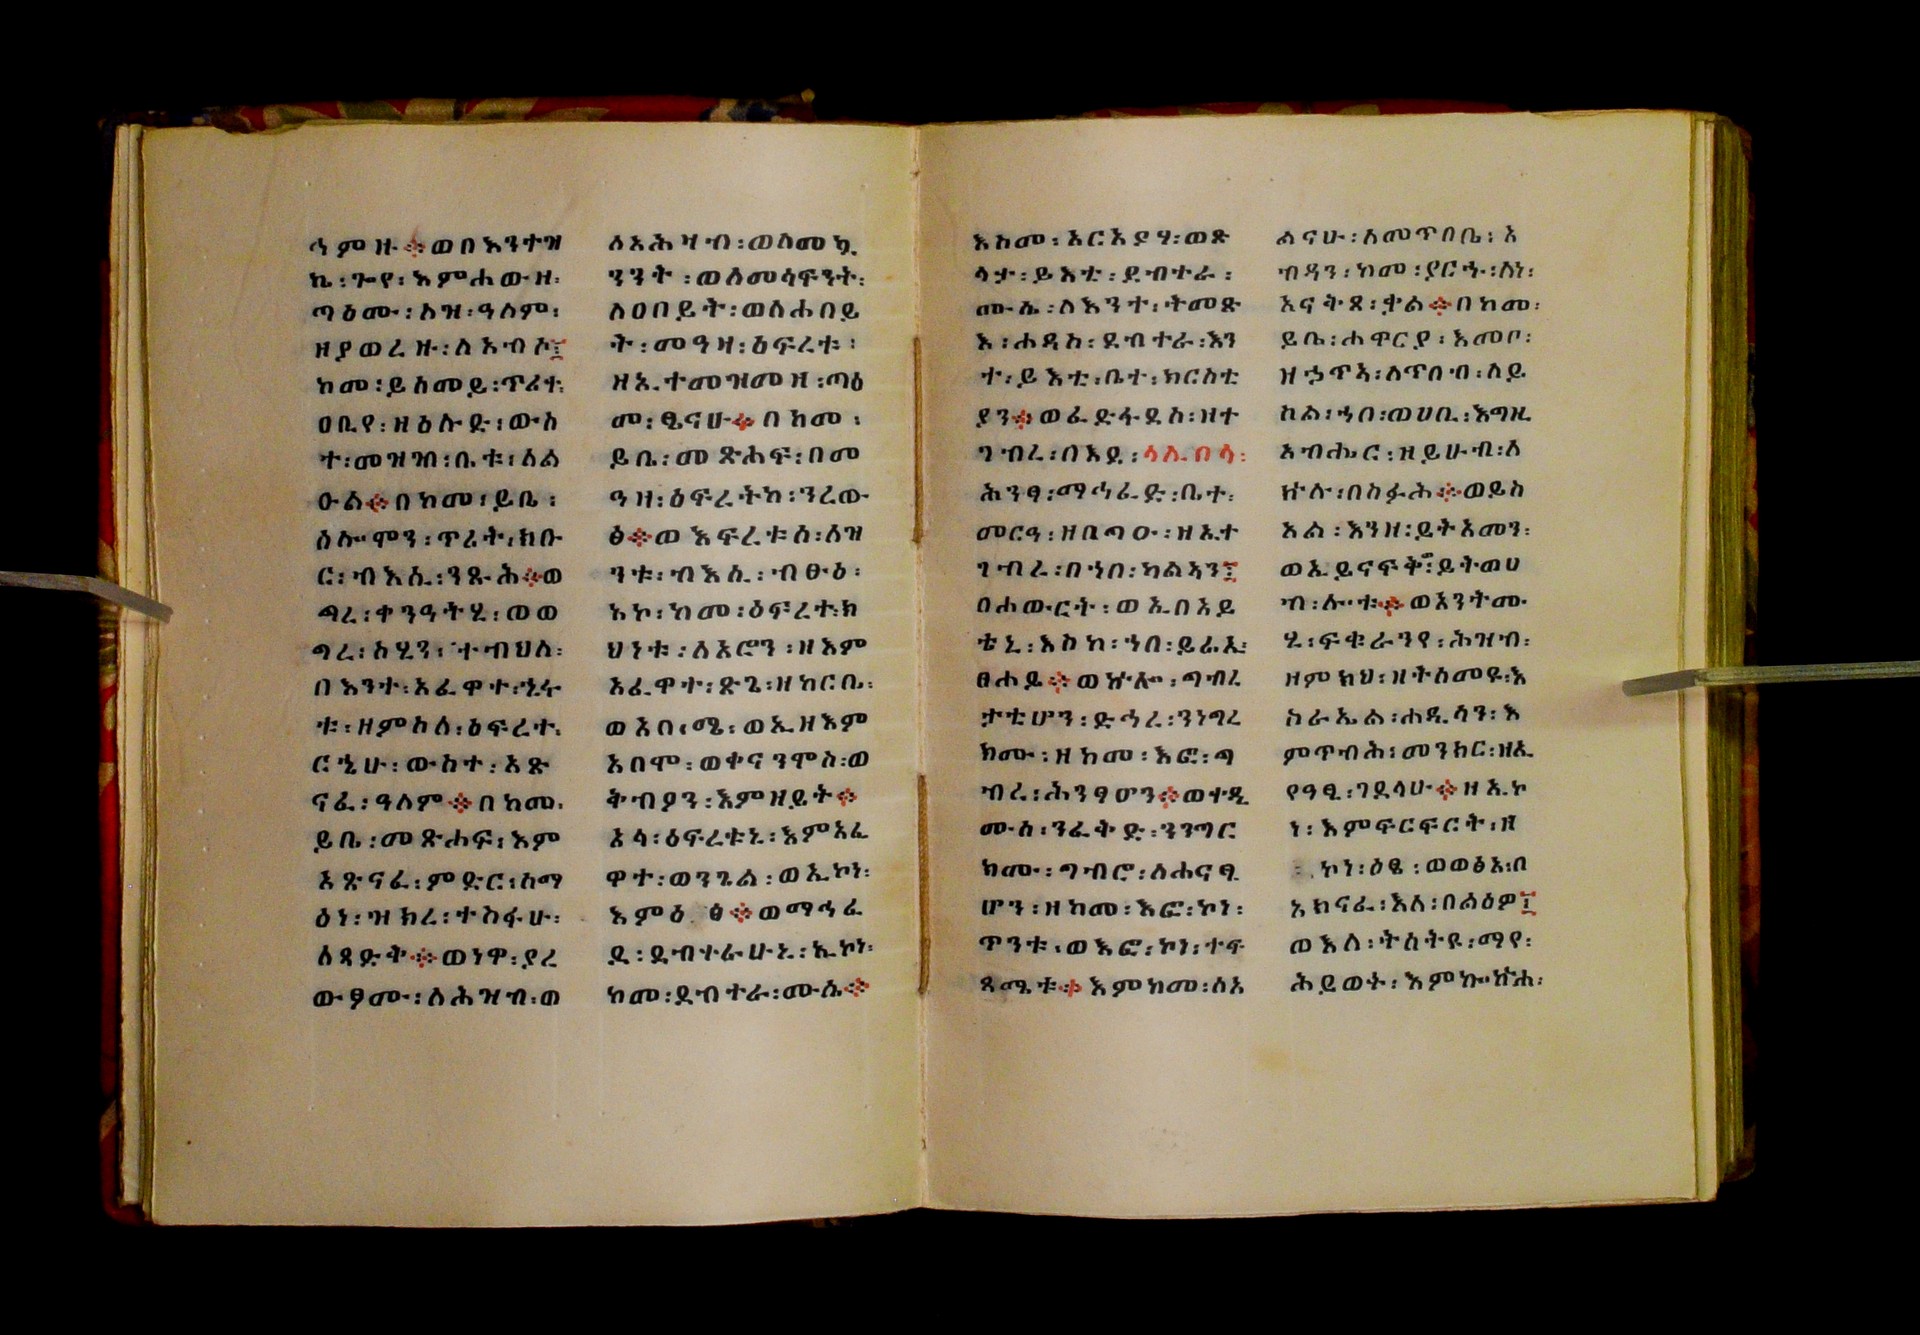 ኀምዙ፨ወበእንተዝ
ኬ፡ጐየ፡እምሐውዘ፡
ጣዕሙ፡ለዝ፡ዓለም፡
ዘያወረዙ፡ለእብኦ፤
ከመ፡ይስመይ፡ጥሪተ፡
ዐቢየ፡ዘዕሉድ፡ውስ
ተ፡መዝገበ፡ቤቱ፡ለል
ዑል፨በከመ፡ይቤ፡
ሰሎሞን፡ጥሪት፡ክቡ
ር፡ብእሲ፡ንጹሕ፨ወ
ጫረ፡ቀንዓትሂ፡ወወ
ግረ፡ስሂን፡ተብህለ፡
በእንተ፡አፈዋተ፡ኂሩ
ቱ፡ዘምስለ፡ዕፍረተ፡
ርኂሁ፡ውስተ፡አጽ
ናፈ፡ዓለም፨በከመ፡
ይቤ፡መጽሐፍ፡እም
አጽናፈ፡ምድር፡ሰማ
ዕነ፡ዝክረ፡ተስፋሁ፡
ለጻድቅ፨ወነዋ፡ያረ
ውፃሙ፡ለሕዝብ፡ወ
ለአሕዛብ፡ወለመኳ
ንንት፡ወለመሳፍንት፡
ለዐበይት፡ወለሐበይ
ት፡መዓዛ፡ዕፍረቱ፡
ዘኢተመዝመዘ፡ጣዕ
መ፡ፄናሁ፨በከመ፡
ይቤ፡መጽሐፍ፡በመ
ዓዛ፡ዕፍረትከ፡ንረው
ፅ፨ወእፍረቱሰ፡ለዝ
ንቱ፡ብእሲ፡ብፁዕ፡
አኮ፡ከመ፡ዕፍረተ፡ክ
ህነቱ፡ለአሮን፡ዘእም
አፈዋተ፡ጽጌ፡ዘከርቤ፡
ወእበ፡ሜ፡ወኢዘእም
አበሞ፡ወቀናንሞስ፡ወ
ቅብዖን፡እምዘይት፨
አላ፡ዕፍረቱኒ፡እምአፈ
ዋተ፡ወንጌል፡ወኢኮነ፡
እምዕፅ፨ወማኅፈ
ዲ፡ደብተራሁኒ፡ኢኮነ፡
ከመ፡ደብተራ፡ሙሴ፨
እከመ፡አርአያሃ፡ወጽ
ላታ፡ይእቲ፡ደብተራ፡
ሙሴ፡ለእንተ፡ትመጽ
እ፡ሐዳስ፡ደብተራ፡እን
ተ፡ይእቲ፡ቤተ፡ክርስቲ
ያን፨ወፈድፋደሰ፡ዝተ
ገብረ፡በእደ፡ላሊበላ፡
ሕንፃ፡ማኅፈድ፡ቤተ፡
መርዓ፡ዘቢጣዑ፡ዘኢተ
ገብረ፡በኀበ፡ካልኣን፤
በሐውርት፡ወኢበአይ
ቴኒ፡እስከ፡ኀበ፡ይሬኢ፡
ፀሐይ፨ወኵሎ፡ጣብረ
ታቲሆን፡ድኅረ፡ንነግረ
ክሙ፡ዘከመ፡እፎ፡ጫ
ብረ፡ሕንፃሆን፨ወቀዲ
ሙሰ፡ንፈቅድ፡ንንግር
ክሙ፡ግብሮ፡ለሐናፂ
ሆን፡ዘከመ፡እፎ፡ኮነ፡
ጥንቱ፡ወእፎ፡ኮነ፡ተፍ
ጻሜቱ፨እምከመ፡ሰአ
ልናሁ፡ለመጥበቤ፡አ
ብዳን፡ከመ፡ያርኁ፡ለነ፡
አናቅጸ፡ቃል፨በከመ፡
ይቤ፡ሐዋርያ፡እመቦ፡
ዘኃጥኣ፡ለጥበብ፡ለይ
ስል፡ኀበ፡ወሀቢ፡እግዚ
አብሔር፡ዘይሁብ፡ለ
ኵሉ፡በስፉሕ፨ወይስ
አል፡እንዘ፡ይትአመን፡
ወኢይናፍቅ፡ይትወሀ
ብ፡ሎቱ፨ወአንትሙ
ሂ፡ፍቁራንየ፡ሕዝብ፡
ዘምክህ፡ዘትሰመዩ፡እ
ስራኤል፡ሐዲሳን፡እ
ምጥብሕ፡መንከር፡ዘኢ
የዓፂ፡ገደላሁ፨ዘኢኮ
ነ፡እምፍርፍርት፡ዘ
ኮነ፡ዕፄ፡ወወፅአ፡በ
አክናፈ፡እለ፡በልዕዎ፤
ወእለ፡ትስትዩ፡ማየ፡
ሕይወት፡እምኰኵሐ፡